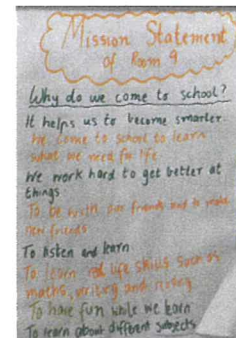 Mission Statement
of Room 9
Why do we come to school?
It helps us to become smarter
We come to school to learn
what we need for life
We work hard to get better at
things
To be with our friends and to make
new friends
To listen and learn
To learn real life skills such as
maths, writing and
To have fun while we learn
To learn about different subjects